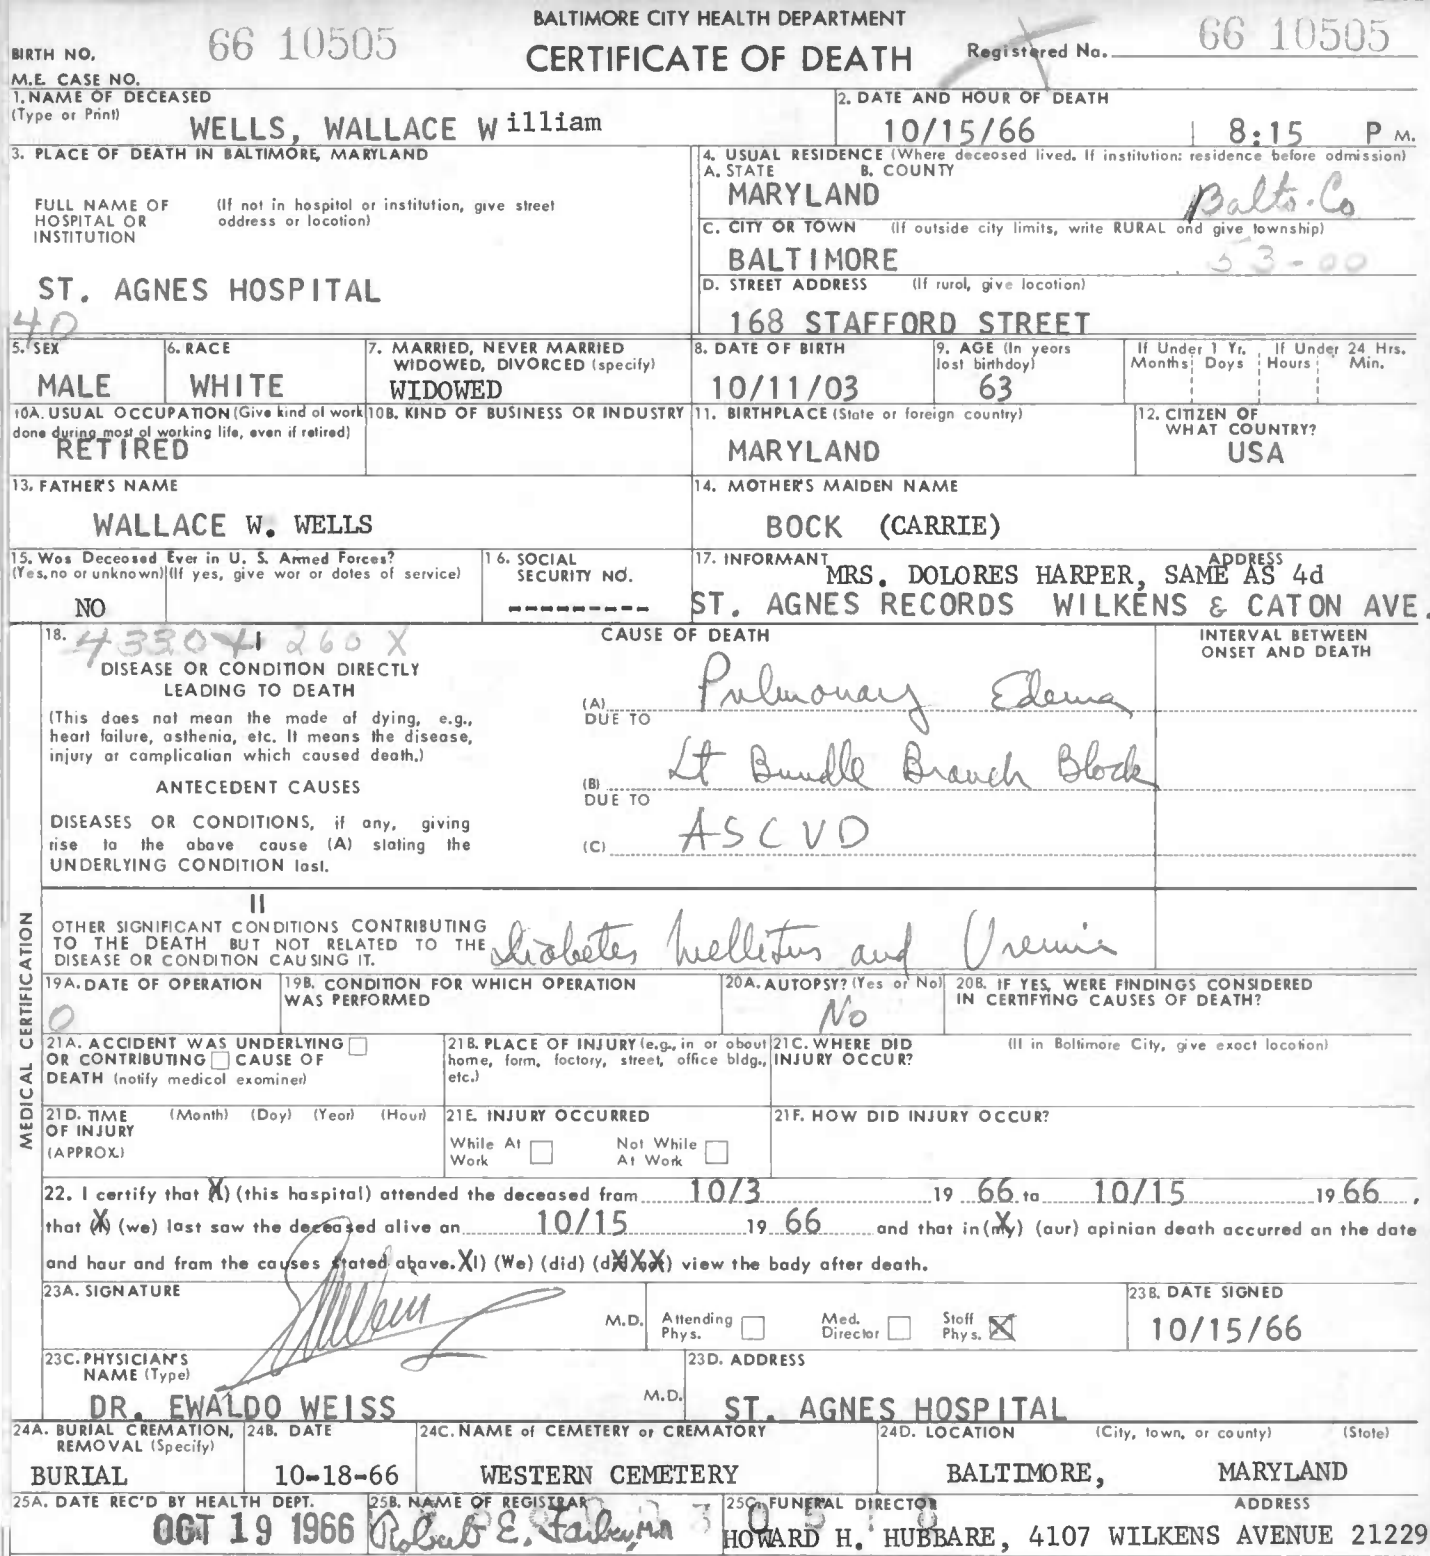 BALTIMORE CITY HEALTH DEPARTMENT
CERTIFICATE OF DEATH
BIRTH NO. 66 10505
Registered No. 66 10505
M.E. CASE NO.
1. NAME OF DECEASED
(Type or Print)
WELLS, WALLACE William
2. DATE AND HOUR OF DEATH
10/15/66 8:15 P M.
3. PLACE OF DEATH IN BALTIMORE, MARYLAND
FULL NAME OF HOSPITAL OR INSTITUTION
(If not in hospital or institution, give street address or location)
ST. AGNES HOSPITAL
40
4. USUAL RESIDENCE (Where deceased lived. If institution: residence before admission)
A. STATE B. COUNTY
MARYLAND Balto. Co
C. CITY OR TOWN (If outside city limits, write RURAL and give township)
BALTIMORE 53-00
D. STREET ADDRESS (If rural, give location)
168 STAFFORD STREET
5. SEX
MALE
6. RACE
WHITE
7. MARRIED, NEVER MARRIED
WIDOWED, DIVORCED (specify)
WIDOWED
8. DATE OF BIRTH
10/11/03
9. AGE (In years
last birthday)
63
If Under 1 Yr.
Months Days
If Under 24 Hrs.
Hours Min.
10A. USUAL OCCUPATION (Give kind of work
done during most of working life, even if retired)
RETIRED
10B. KIND OF BUSINESS OR INDUSTRY
11. BIRTHPLACE (State or foreign country)
MARYLAND
12. CITIZEN OF
WHAT COUNTRY?
USA
13. FATHER'S NAME
WALLACE W. WELLS
14. MOTHER'S MAIDEN NAME
BOCK (CARRIE)
15. Was Deceased Ever in U. S. Armed Forces?
(Yes, no or unknown) (If yes, give war or dates of service)
NO
16. SOCIAL
SECURITY NO.
---------
17. INFORMANT ADDRESS
MRS. DOLORES HARPER, SAME AS 4d
ST. AGNES RECORDS WILKENS & CATON AVE.
18. 260 X
I
DISEASE OR CONDITION DIRECTLY
LEADING TO DEATH
(This does not mean the mode of dying, e.g.,
heart failure, asthenia, etc. It means the disease,
injury or complication which caused death.)
ANTECEDENT CAUSES
DISEASES OR CONDITIONS, if any, giving
rise to the above cause (A) stating the
UNDERLYING CONDITION last.
CAUSE OF DEATH
(A) Pulmonary Edema
DUE TO
(B) Lt Bundle Branch Block
DUE TO
(C) ASCVD
INTERVAL BETWEEN
ONSET AND DEATH
MEDICAL CERTIFICATION
II
OTHER SIGNIFICANT CONDITIONS CONTRIBUTING
TO THE DEATH BUT NOT RELATED TO THE
DISEASE OR CONDITION CAUSING IT.
Diabetes Mellitus and Uremia
19A. DATE OF OPERATION
0
19B. CONDITION FOR WHICH OPERATION
WAS PERFORMED
20A. AUTOPSY? (Yes or No)
No
20B. IF YES, WERE FINDINGS CONSIDERED
IN CERTIFYING CAUSES OF DEATH?
21A. ACCIDENT WAS UNDERLYING
OR CONTRIBUTING CAUSE OF
DEATH (notify medical examiner)
21B. PLACE OF INJURY (e.g., in or about
home, farm, factory, street, office bldg.,
etc.)
21C. WHERE DID
INJURY OCCUR?
(If in Baltimore City, give exact location)
21D. TIME (Month) (Day) (Year) (Hour)
OF INJURY
(APPROX.)
21E. INJURY OCCURRED
While At
Work
Not While
At Work
21F. HOW DID INJURY OCCUR?
22. I certify that (X) (this hospital) attended the deceased from 10/3 19 66 to 10/15 19 66,
that (X) (we) last saw the deceased alive on 10/15 19 66 and that in (my) (our) opinion death occurred on the date
and hour and from the causes stated above. XI) (We) (did) (did not) view the body after death.
23A. SIGNATURE
M.D.
Attending
Phys.
Med.
Director
Staff
Phys. X
23B. DATE SIGNED
10/15/66
23C. PHYSICIAN'S
NAME (Type)
DR. EWALDO WEISS M.D.
23D. ADDRESS
ST. AGNES HOSPITAL
24A. BURIAL CREMATION,
REMOVAL (Specify)
BURIAL
24B. DATE
10-18-66
24C. NAME of CEMETERY or CREMATORY
WESTERN CEMETERY
24D. LOCATION (City, town, or county) (State)
BALTIMORE, MARYLAND
25A. DATE REC'D BY HEALTH DEPT.
OCT 19 1966
25B. NAME OF REGISTRAR
Robert E. Farber, M.D.
25C. FUNERAL DIRECTOR ADDRESS
HOWARD H. HUBBARE, 4107 WILKENS AVENUE 21229